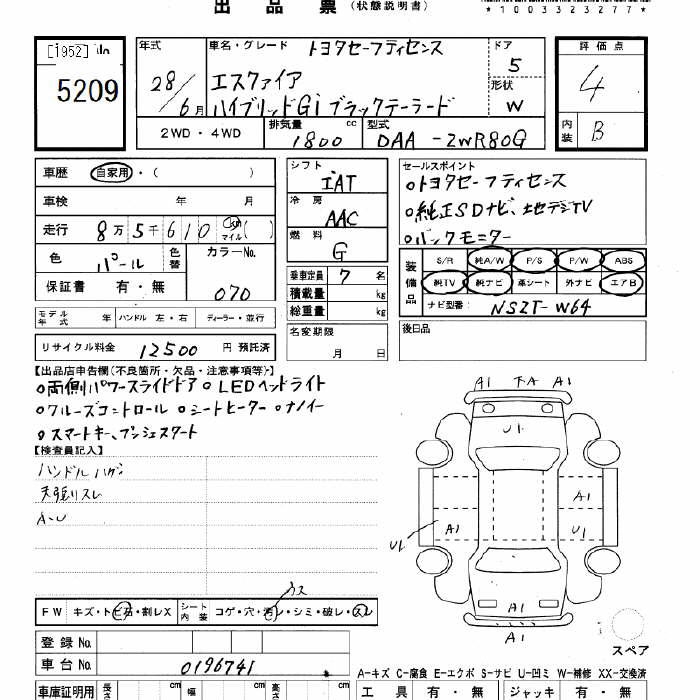 出 品 票 (状態説明書)
*1003323277*
[1952]
5209
年式 28/6月
車名・グレード トヨタセーフティセンス
エスクァイア
ハイブリッドGi ブラックテーラード
ドア 5
形状 W
評価点 4
内装 B
2WD ・ 4WD
排気量 1800 cc
型式 DAA-ZWR80G
車歴 自家用 ・( )
車検 年 月
走行 8万5千610 km マイル ( )
色 パール 色替
カラーNo. 070
保証書 有 ・ 無
モデル年式 年 ハンドル 左・右 ディーラー・並行
リサイクル料金 12500 円 預託済
シフト IAT
冷房 AAC
燃料 G
乗車定員 7 名
積載量 kg
総重量 kg
名変期限 月 日
セールスポイント
○トヨタセーフティセンス
○純正SDナビ、地デジTV
○バックモニター
装備品 S/R 純A/W P/S P/W ABS
純TV 純ナビ 革シート 外ナビ エアB
ナビ型番: NSZT-W64
後日品
【出品店申告欄(不良箇所・欠品・注意事項等)】
○両側パワースライドドア ○LEDヘッドライト
○クルーズコントロール ○シートヒーター ○ナノイー
○スマートキー、プッシュスタート
【検査員記入】
ハンドルハゲ
天張りスレ
A-U
A1 A A1
U1
A1
A1 U1
U1
A1
A1
スペア
FW キズ・トビ石・割レX シート内装 コゲ・穴・汚レ・シミ・破レ・スレ
登録 No.
車台 No. 0196741
A-キズ C-腐食 E-エクボ S-サビ U-凹ミ W-補修 XX-交換済
車庫証明用 長さ cm 幅 cm 高さ cm
工具 有・無 ジャッキ 有・無